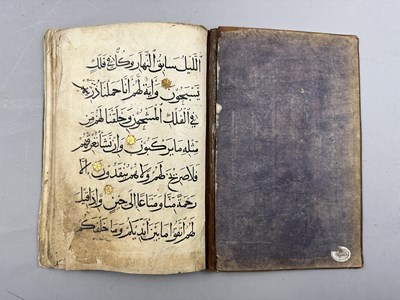 الليل سابق النهار وكل في فلك
يسبحون وآية لهم أنا حملنا ذريته
في الفلك المشحون وخلقنا لهم من
مثله ما يركبون وإن نشأ نغرقهم
فلا صريخ لهم ولا هم ينقذون إلا
رحمة منا ومتاعا إلى حين وإذا قيل
لهم اتقوا ما بين أيديكم وما خلفكم